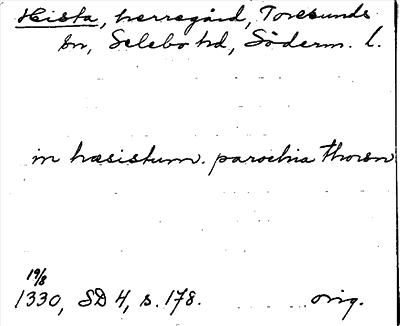 Hista, herregård, Toresunds
sn, Selebo hd, Söderm. l.
in hæsistum. parochia thoresn
19/8
1330, SD 4, s. 178. orig.